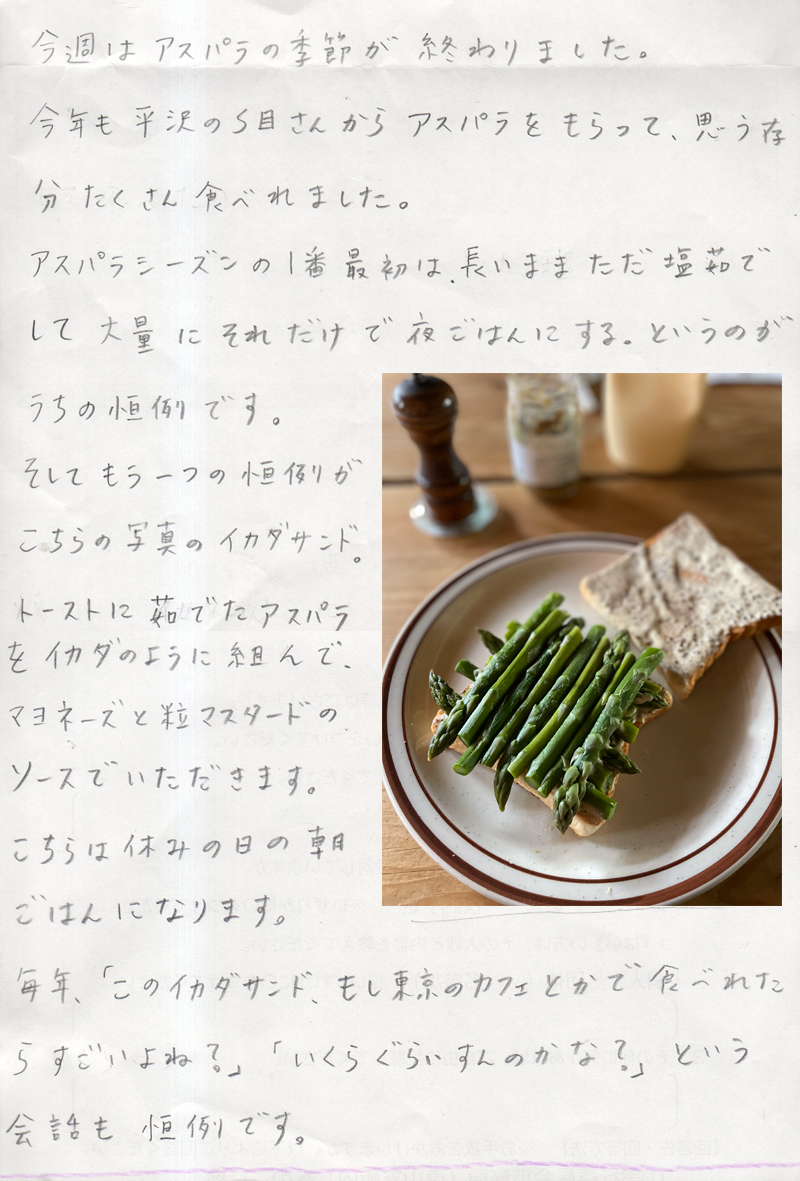 今週はアスパラの季節が終わりました。
今年も平沢のS目さんからアスパラをもらって、思う存
分たくさん食べれました。
アスパラシーズンの1番最初は、長いままただ塩茹で
して大量にそれだけで夜ごはんにする。というのが
うちの恒例です。
そしてもう一つの恒例が
こちらの写真のイカダサンド。
トーストに茹でたアスパラ
をイカダのように組んで、
マヨネーズと粒マスタードの
ソースでいただきます。
こちらは休みの日の朝
ごはんになります。
毎年、「このイカダサンド、もし東京のカフェとかで食べれた
らすごいよね？」「いくらぐらいすんのかな？」という
会話も恒例です。